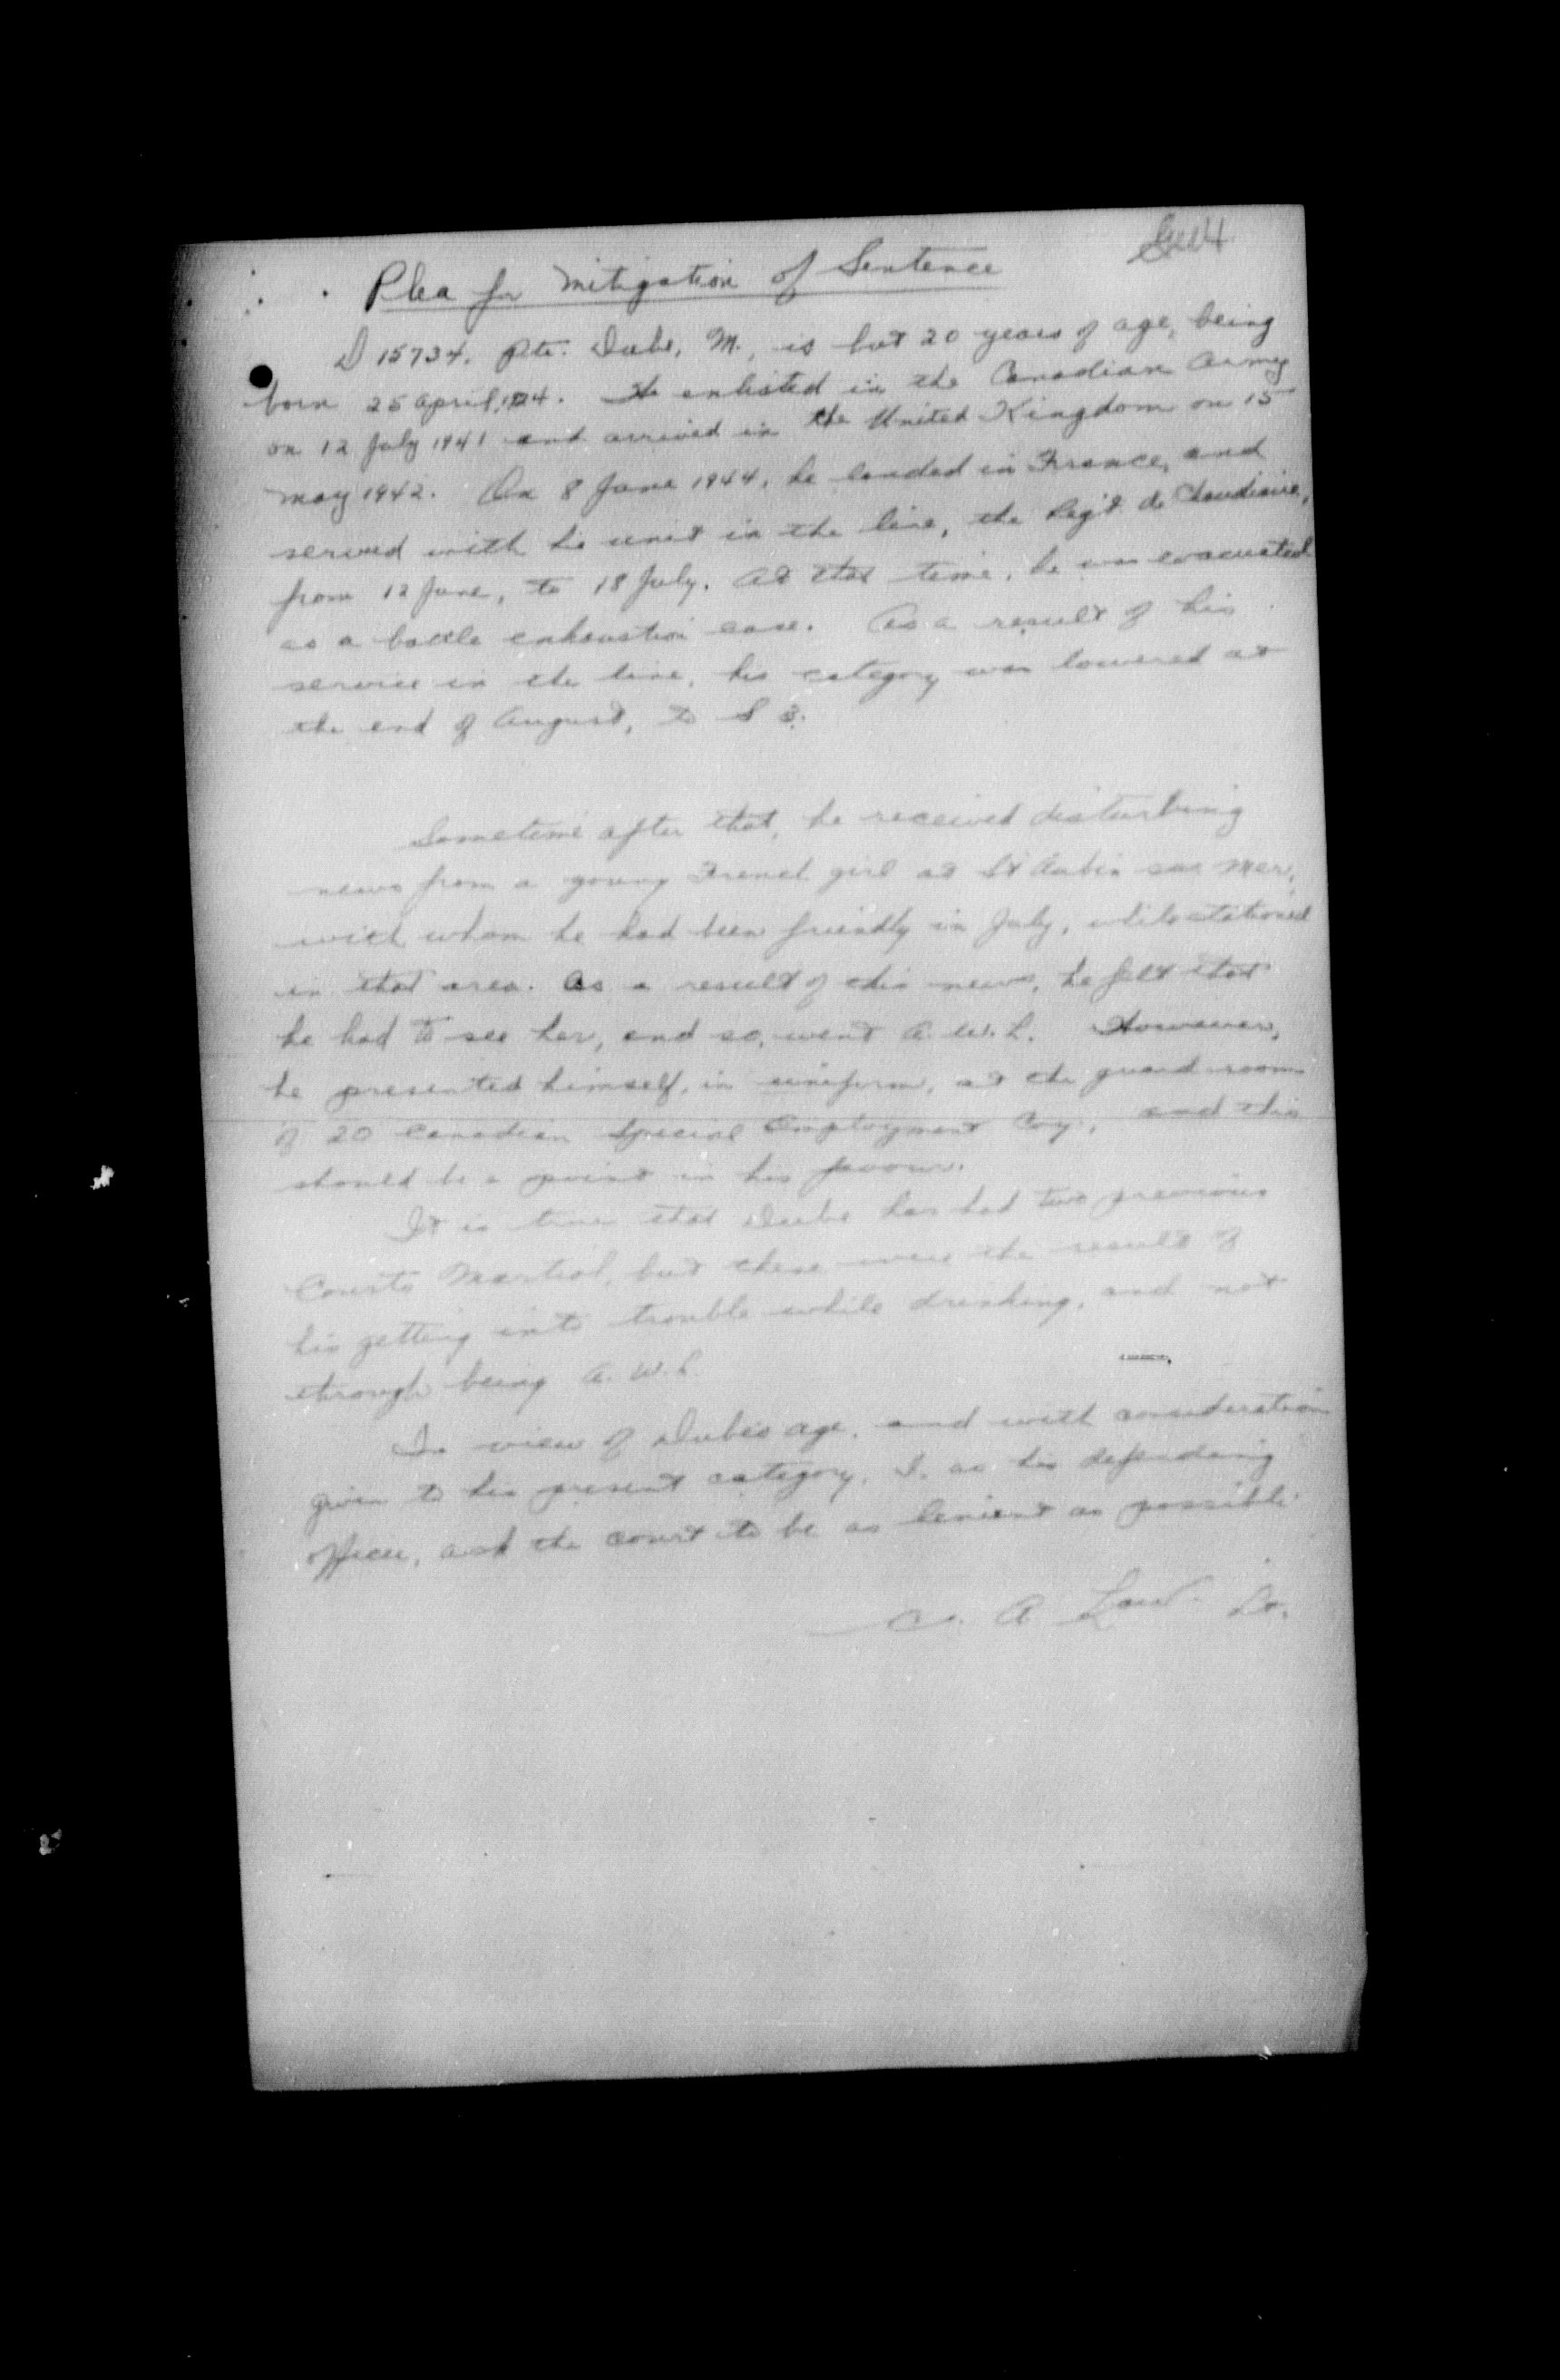 Plea for Mitigation of Sentence
D 15734. Pte. Dube, M., is but 20 years of age, being
born 25 April, 1924. He enlisted in the Canadian Army
on 12 July 1941 and arrived in the United Kingdom on 15
May 1942. On 8 June 1944, he landed in France, and
served with his unit in the line, the Reg't de Chaudiere,
from 12 June, to 18 July. At that time, he was evacuated
as a battle exhaustion case. As a result of his
service in the line, his category was lowered at
the end of August, to S 3.
Sometime after that, he received disturbing
news from a young French girl at St Aubin sur Mer,
with whom he had been friendly in July, while stationed
in that area. As a result of this news, he felt that
he had to see her, and so, went A.W.L. However,
he presented himself, in uniform, at the guard room
of 20 Canadian Special Employment Coy., and this
should be a point in his favour.
It is true that Dube has had two previous
Courts Martial, but these were the result of
his getting into trouble while drinking, and not
through being A.W.L.
In view of Dube's age, and with consideration
given to his present category, I, as his defending
officer, ask the court to be as lenient as possible.
A. Lt.